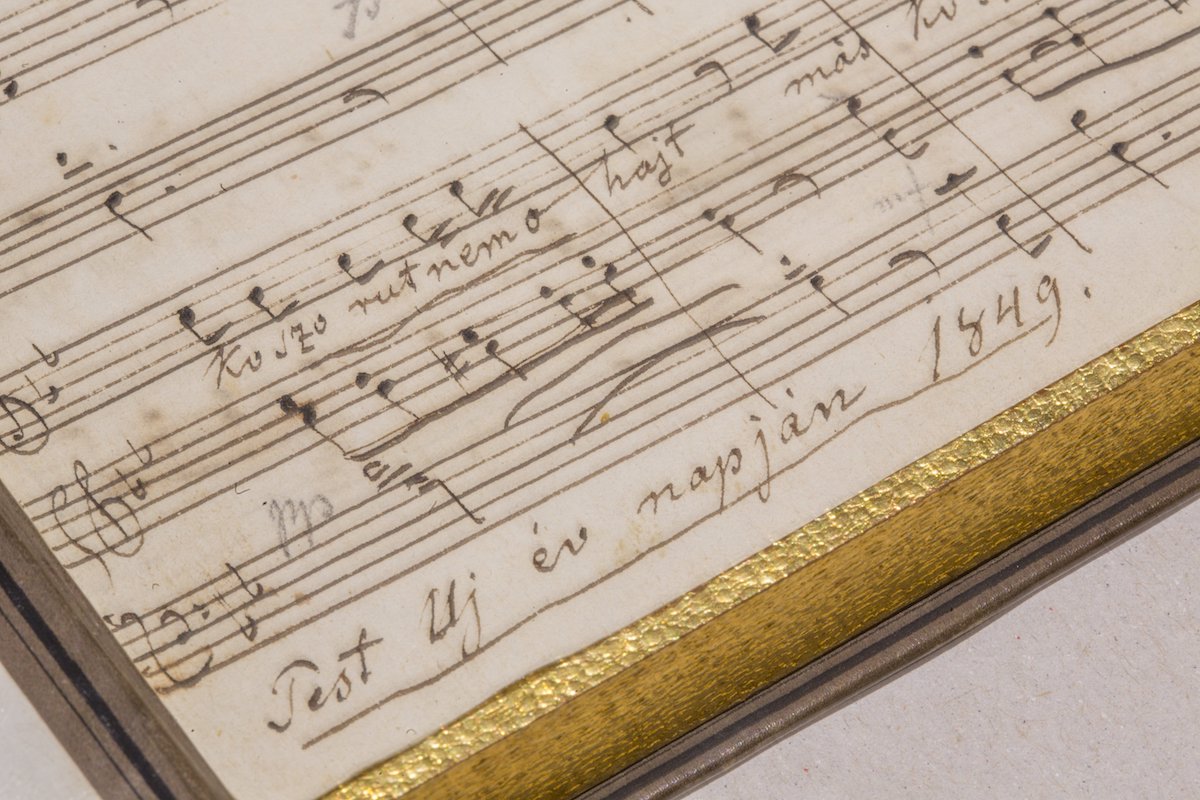 koszo rut nem o hajt más ko
Pest Uj év napján 1849.